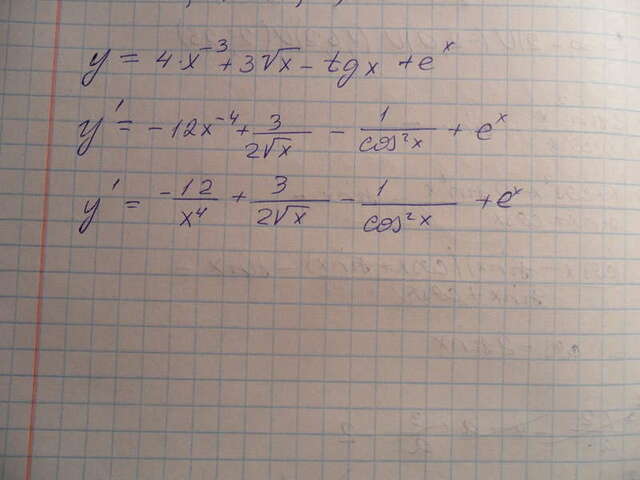 y = 4·x⁻³ + 3√x − tgx + eˣ
y' = −12x⁻⁴ + 3/(2√x) − 1/(cos²x) + eˣ
y' = −12/x⁴ + 3/(2√x) − 1/(cos²x) + eˣ